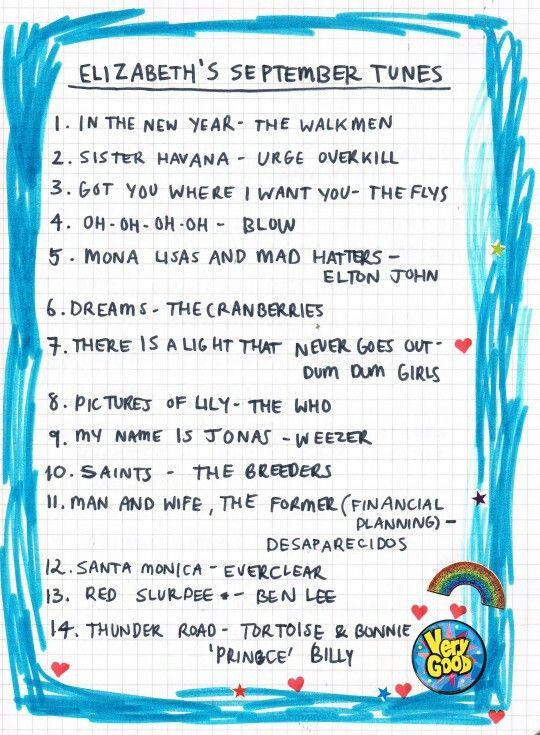 ELIZABETH'S SEPTEMBER TUNES
1. IN THE NEW YEAR - THE WALKMEN
2. SISTER HAVANA - URGE OVERKILL
3. GOT YOU WHERE I WANT YOU - THE FLYS
4. OH-OH-OH-OH - BLOW
5. MONA LISAS AND MAD HATTERS -
ELTON JOHN
6. DREAMS - THE CRANBERRIES
7. THERE IS A LIGHT THAT NEVER GOES OUT -
DUM DUM GIRLS
8. PICTURES OF LILY - THE WHO
9. MY NAME IS JONAS - WEEZER
10. SAINTS - THE BREEDERS
11. MAN AND WIFE, THE FORMER (FINANCIAL
PLANNING) -
DESAPARECIDOS
12. SANTA MONICA - EVERCLEAR
13. RED SLURPEE - BEN LEE
14. THUNDER ROAD - TORTOISE & BONNIE
'PRINGCE' BILLY
Very
GOOD